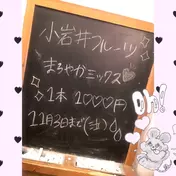 小岩井フルーツ
まろやかミックス
1本 1000円
11月3日まで(土)
Oh!